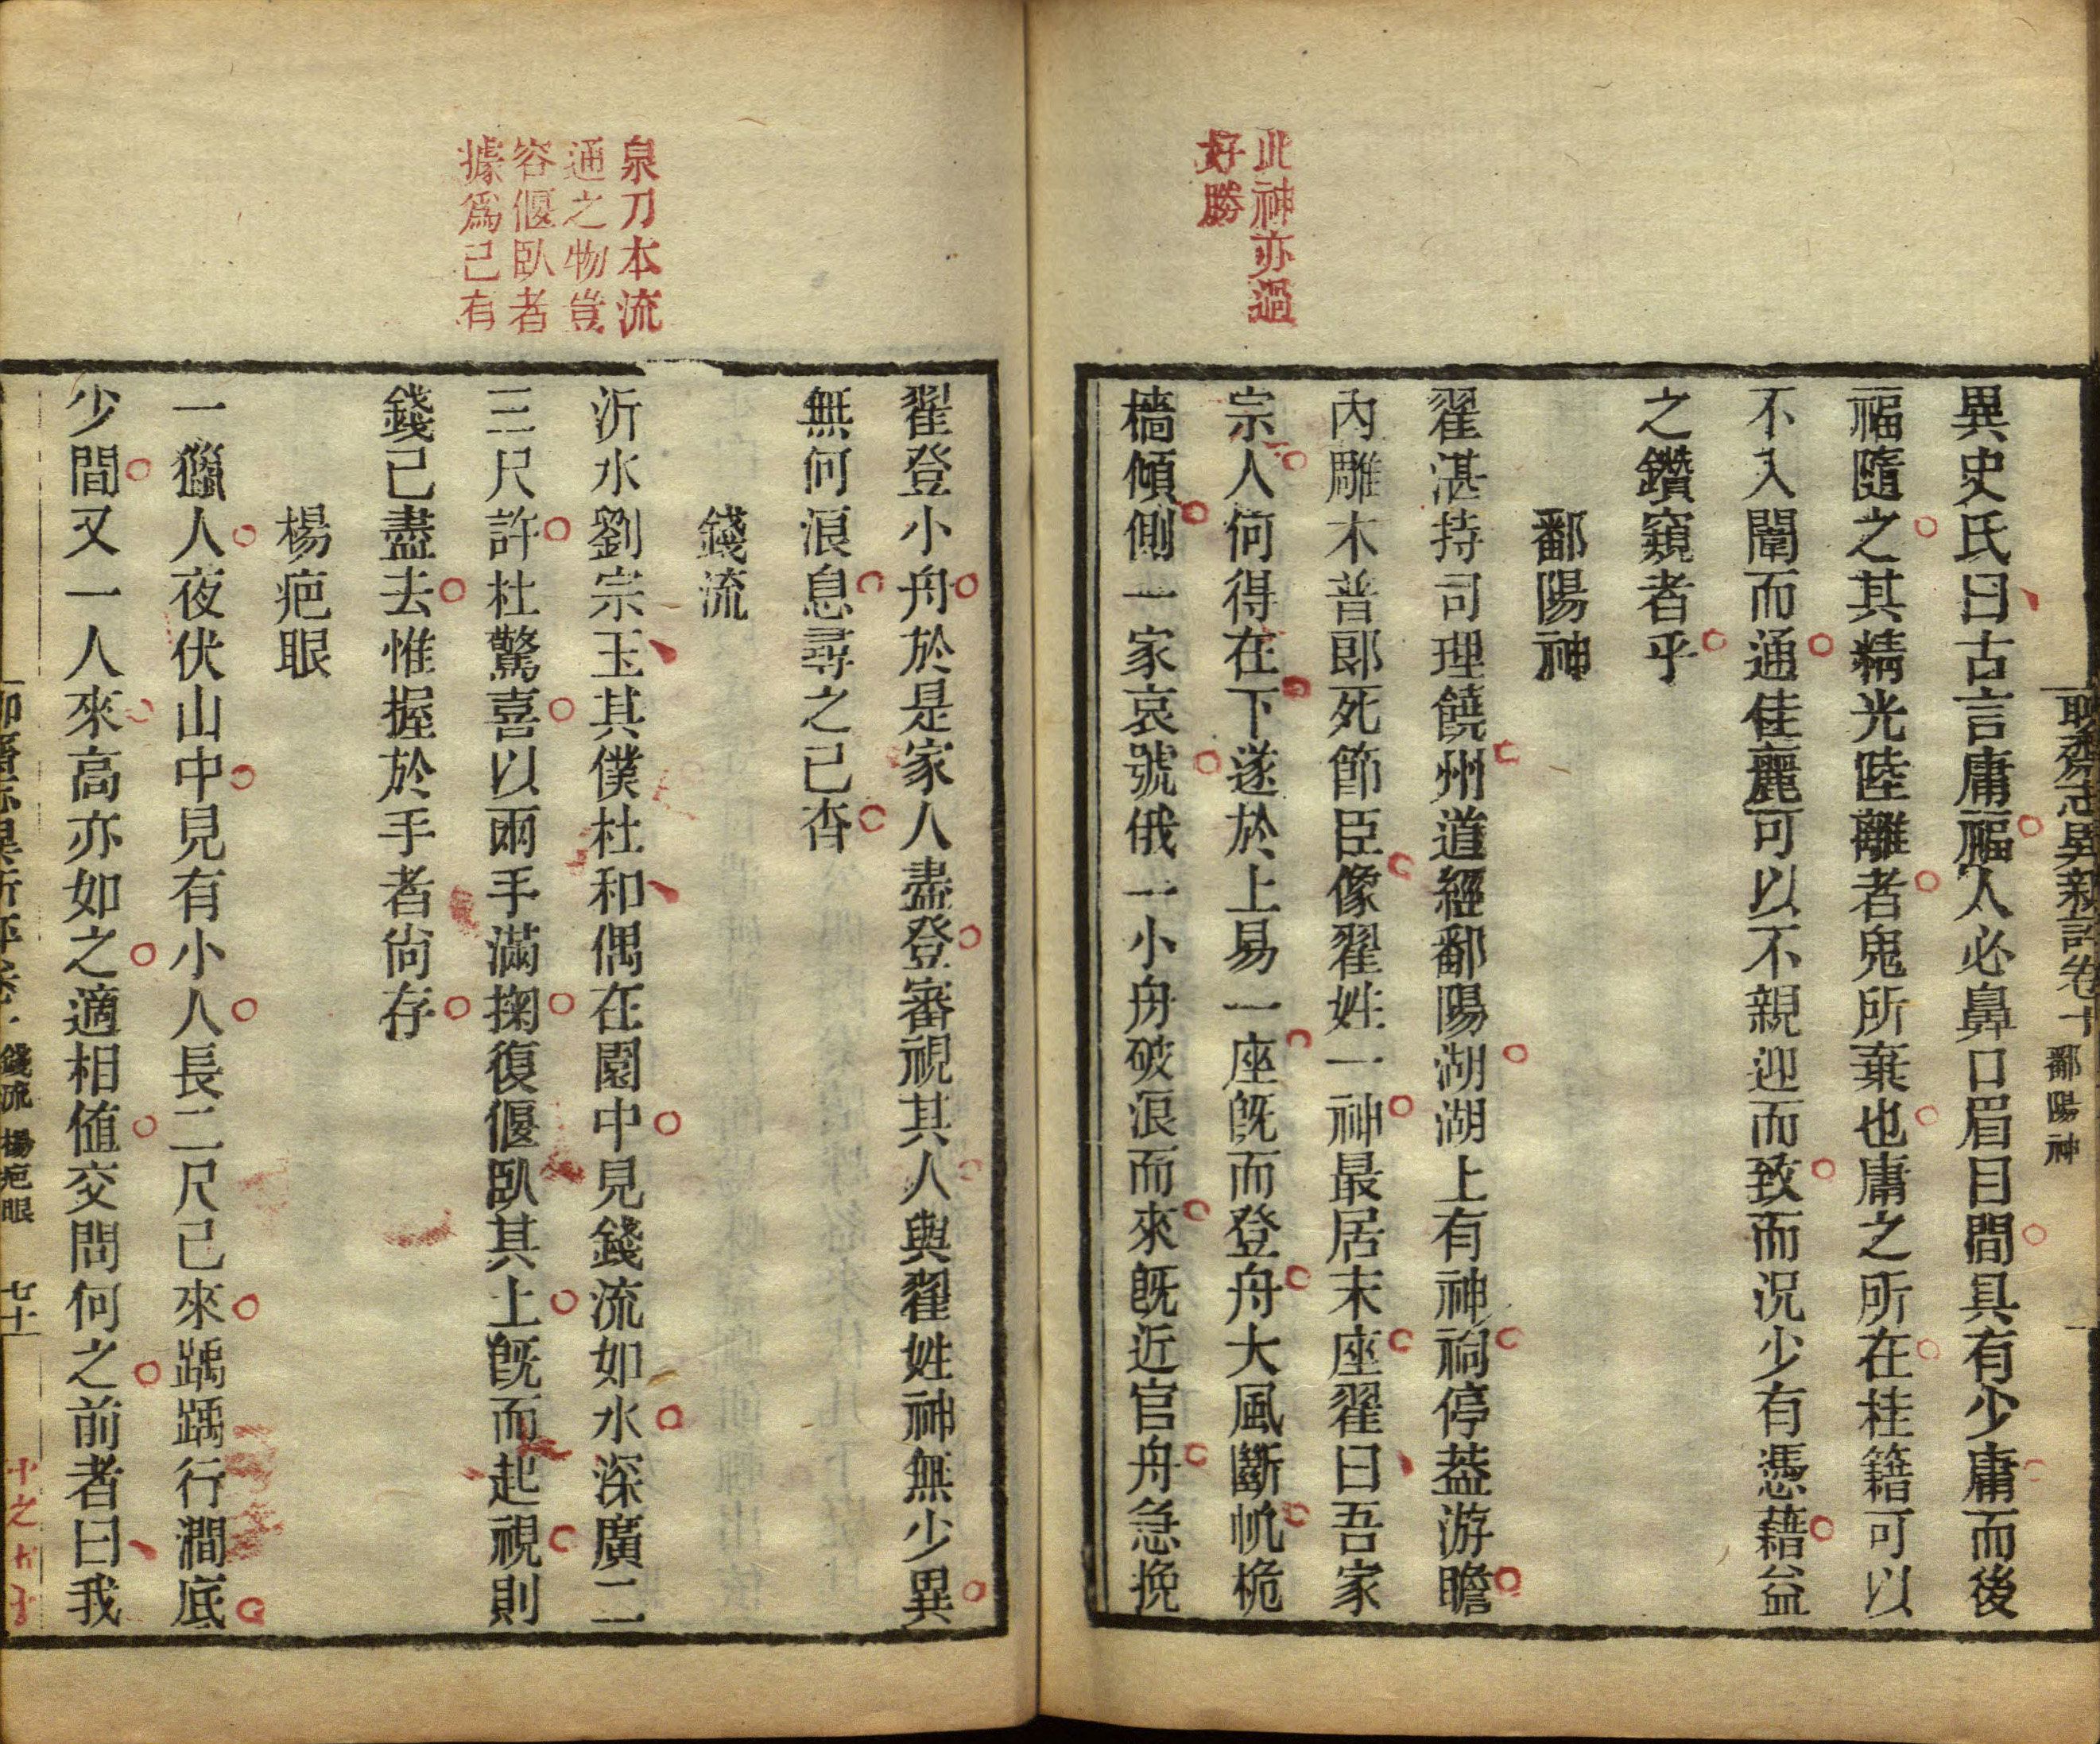 聊齋志異新評卷十 鄱陽神
此神亦過
好勝
異史氏曰古言庸福人必鼻口眉目間具有少庸而後
福隨之其精光陸離者鬼所棄也庸之所在桂籍可以
不入闈而通佳麗可以不親迎而致而況少有憑藉益
之鑽窺者乎
鄱陽神
翟湛持司理饒州道經鄱陽湖湖上有神祠停葢游瞻
內雕木普郎死節臣像翟姓一神最居末座翟曰吾家
宗人何得在下遂於上易一座旣而登舟大風斷帆桅
檣傾側一家哀號俄一小舟破浪而來旣近官舟急挽
泉刀本流
通之物豈
容偃臥者
據爲己有
翟登小舟於是家人盡登審視其人與翟姓神無少異
無何浪息尋之已杳
錢流
沂水劉宗玉其僕杜和偶在園中見錢流如水深廣二
三尺許杜驚喜以兩手滿掬復偃臥其上旣而起視則
錢已盡去惟握於手者尙存
楊疤眼
一獵人夜伏山中見有小人長二尺已來踽踽行澗底
少間又一人來高亦如之適相値交問何之前者曰我
錢流 楊疤眼 七十一